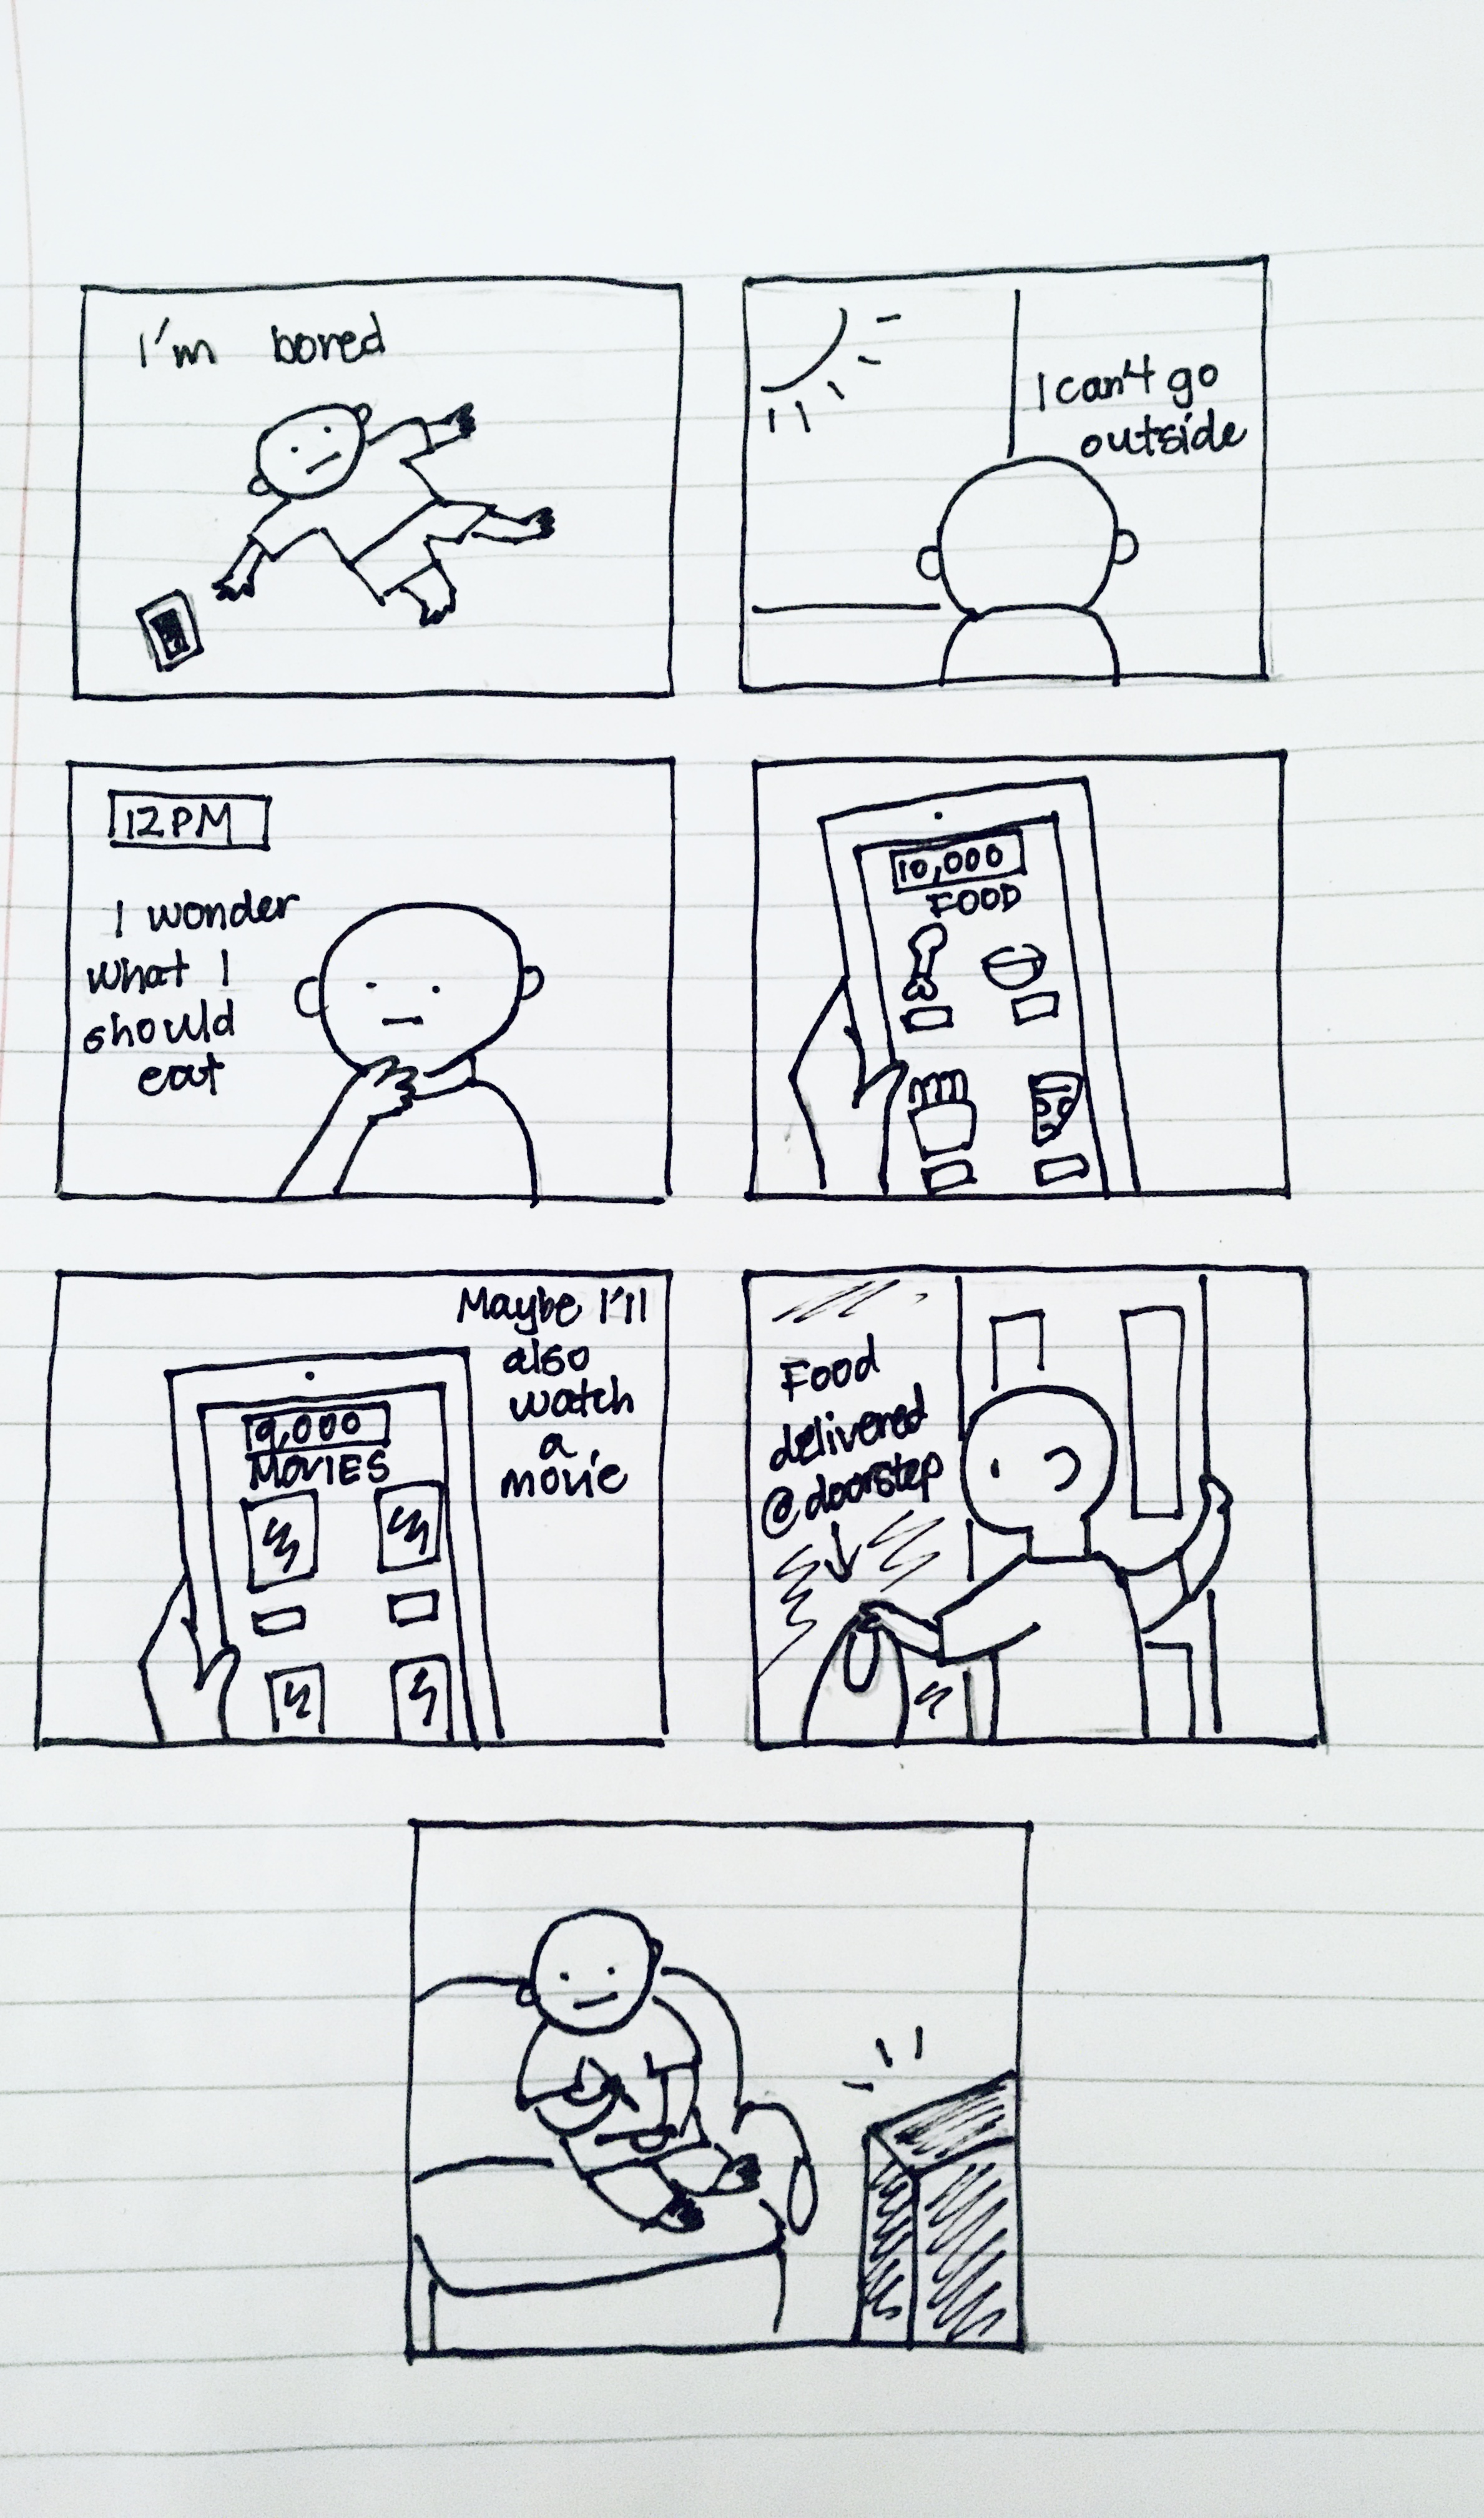 I'm bored
I can't go
outside
12PM
I wonder
what I
should
eat
10,000
FOOD
Maybe I'll
also
watch
a
movie
9,000
MOVIES
Food
delivered
@doorstep